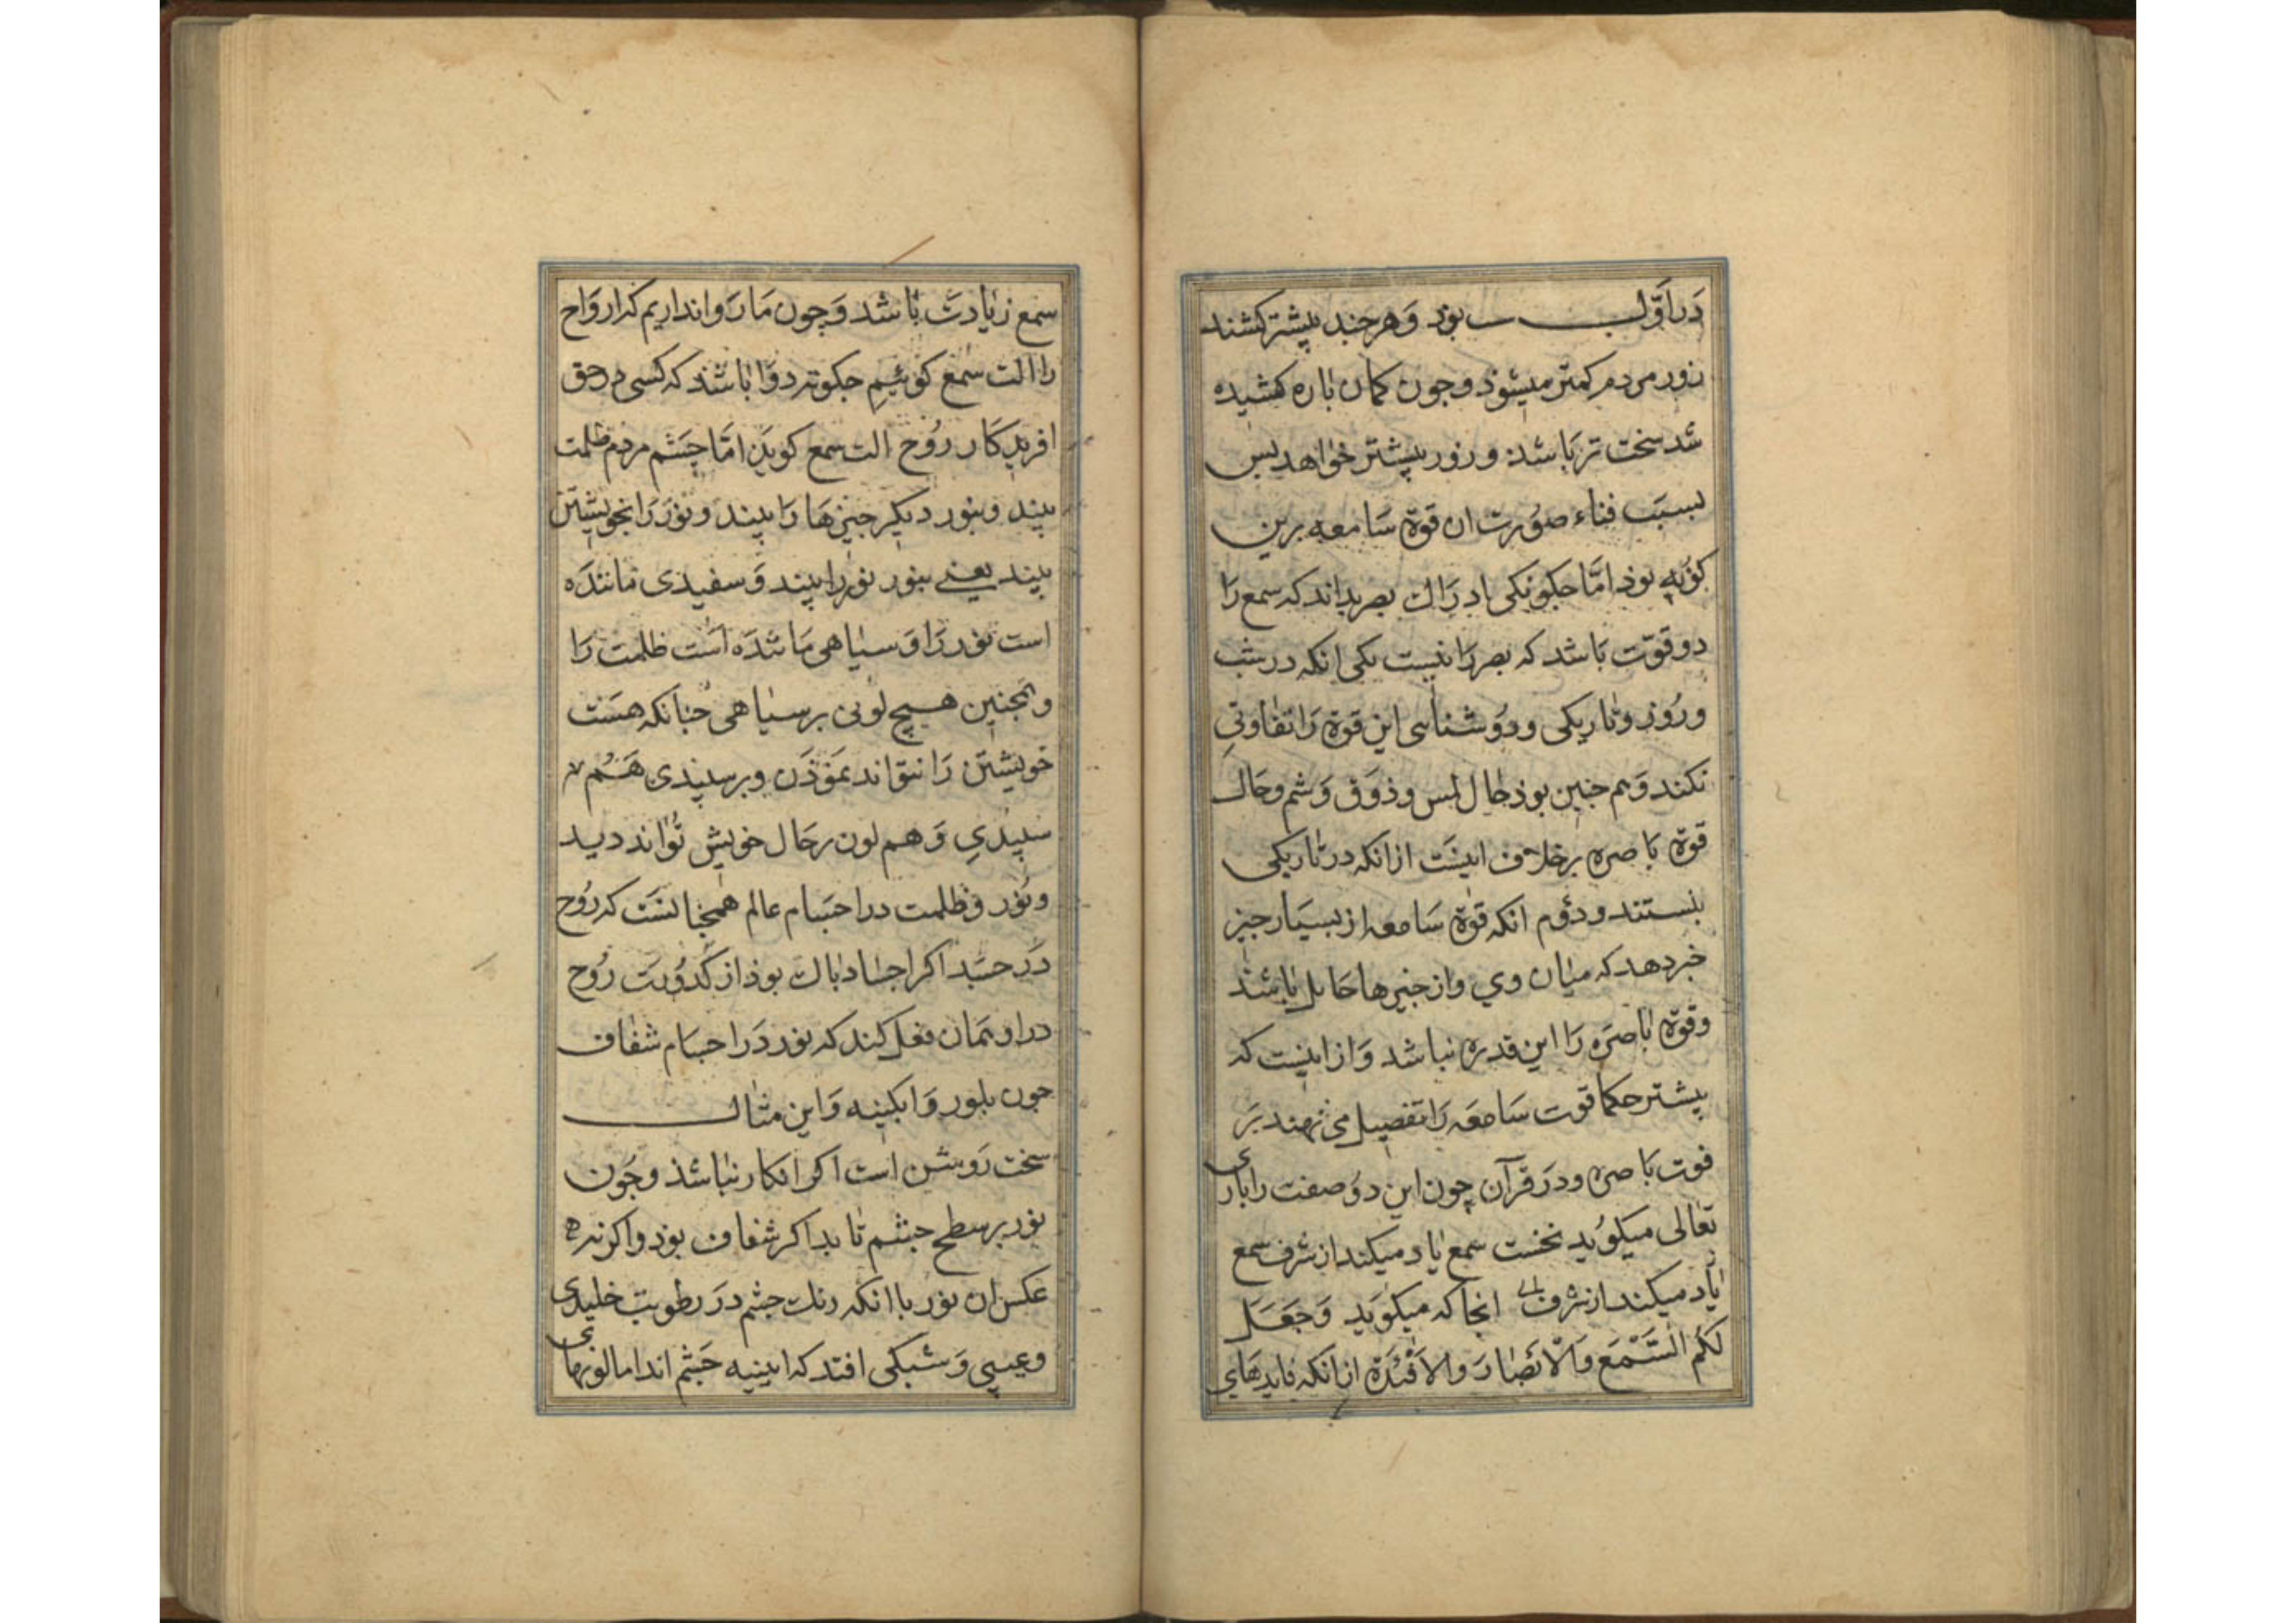 در اوّل بود و هر چند بیشتر کشند
زور مردم کمتر میشوذ و جون کمان باره کشیده
شد سخت تر باشد و زور بیشتر خواهد بس
بسبب فناء صورت ان قوة سامعه برین
کونه بوذ امّا جکونکی ادراك بصر بداند که سمع را
دو قوّت باشد که بصر را نیست یکی انکه در شب
و روز و تاریکی و روشنای این قوة را تفاوتی
نکند و هم جنین بوذ حال لمس و ذوق و شم و حال
قوة باصره برخلاف اینست از انکه در تاریکی
بنستند و دوم انکه قوة سامعه از بسیار جیز
خبر دهد که میان وي و ان جیزها حایل باشد
و قوة باصره را این قدره نباشد و از اینست که
بیشتر حکما قوت سامعه را تفضیل می نهند بر
قوت باصره و در قرآن چون این دو صفت را باری
تعالی میکوید نخست سمع یاد میکند از شرف سمع
یاد میکند از شرف انجا که میکوید وَجَعَلَ
لَكُم السَّمْعَ وَالْاَبْصَارَ وَالاَفْئِدَةَ از انکه فایدهای
سمع زیادت باشد و چون ما روا نداریم که ارواح
را الت سمع کوئیم جکونه روا باشد که کسی در حق
افریدکار روح الت سمع کوید امّا چشم مردم ظلمت
بیند و بنور دیکر جیزها را بیند و نور را بخویشتن
بیند یعنی بنور نور را بیند و سفیدی ماننده
است نور را و سیاهی ماننده است ظلمت را
و همجنین هیچ لونی بر سیاهی جنانکه هست
خویشتن را نتواند نموذن و بر سپیدی هم
سپیدی و هم لون بر حال خویش تواند دید
و نور و ظلمت در اجسام عالم همچنانست که روح
در جسد اکر اجساد باك بوذ از کدورت روح
در او همان فعل کند که نور در اجسام شفاف
جون بلور و ابکینه و این مثال
سخت روشن است اکر انکار نباشذ و جون
نور بر سطح جشم تابد اکر شفاف بوذ و اکر نه
عکس ان نور با انکه رنك جشم در رطوبت جلیدی
و عیبی و شبکی افتد که ایینیه جشم اند اما لونهای